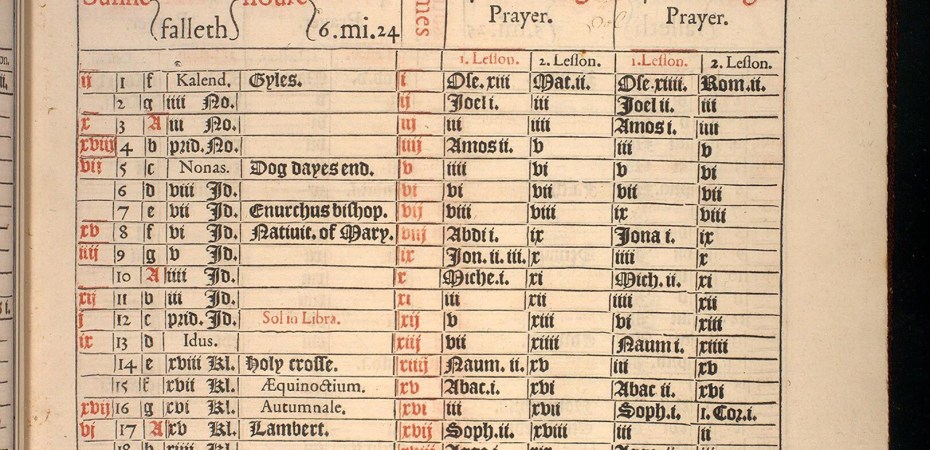 falleth 6.mi.24 Prayer. Prayer.
1. Lesson. 2. Lesson. 1. Lesson. 2. Lesson.
ij 1 f Kalend. Gyles. i Ose. xiii Mat. ii. Ose. xiiii. Rom. ii.
2 g iiii No. ij Joel i. iii Joel ii. iii
x 3 A iii No. iij iii iiii Amos i. iiii
xviij 4 b prid. No. iiij Amos ii. v iii v
vij 5 c Nonas. Dog dayes end. v iiii vi v vi
6 d viii Jd. vi vi vii vii vii
7 e vii Jd. Enurchus bishop. vij viii viii ix viii
xv 8 f vi Jd. Natiuit. of Mary. viij Abdi i. ix Jona i. ix
iiij 9 g v Jd. ix Jon. ii. iii. x iiii x
10 A iiii Jd. x Miche. i. xi Mich. ii. xi
xij 11 b iii Jd. xi iii xii iiii xii
j 12 c prid. Jd. Sol in Libra. xij v xiii vi xiii
ix 13 d Idus. xiij vii xiiii Naum i. xiiii
14 e xviii Kl. Holy crosse. xiiij Naum. ii. xv iii xv
15 f xvii Kl. Æquinoctium. xv Abac. i. xvi Abac ii. xvi
xvij 16 g xvi Kl. Autumnale. xvi iii xvii Soph. i. 1. Cor. i.
vj 17 A xv Kl. Lambert. xvij Soph. ii. xviii iii ii